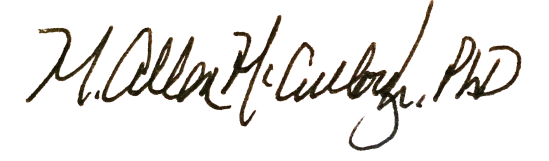 M. Allen McCullough, PhD